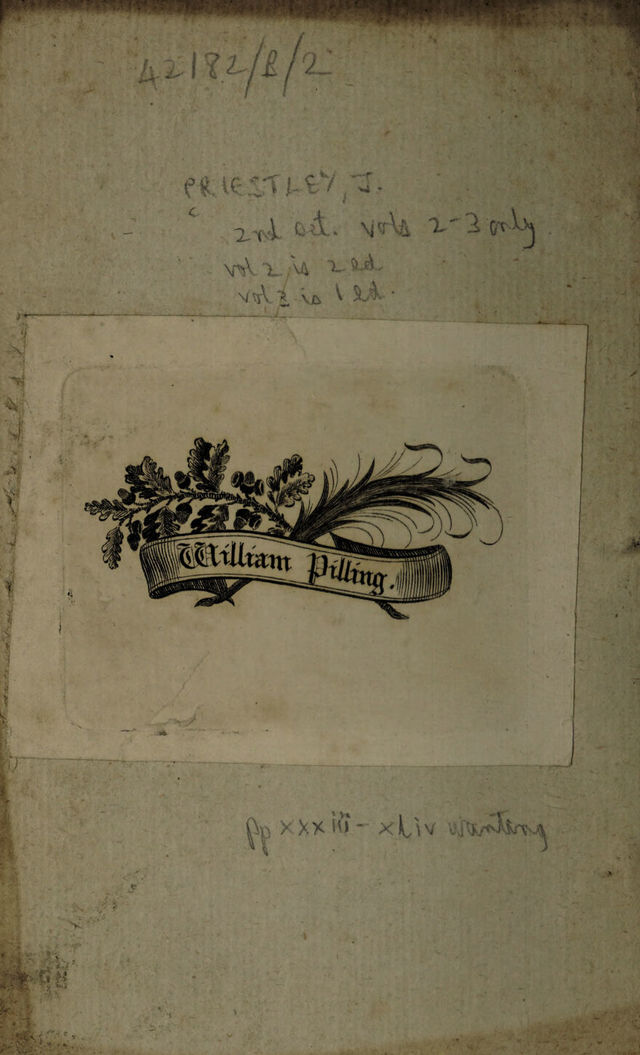 42182/B/2
PRIESTLEY, J.
2nd set. vols 2-3 only
vol 2 is 2 ed
vol 3 is 1 ed.
William Pilling.
pp xxxiii - xliv wanting